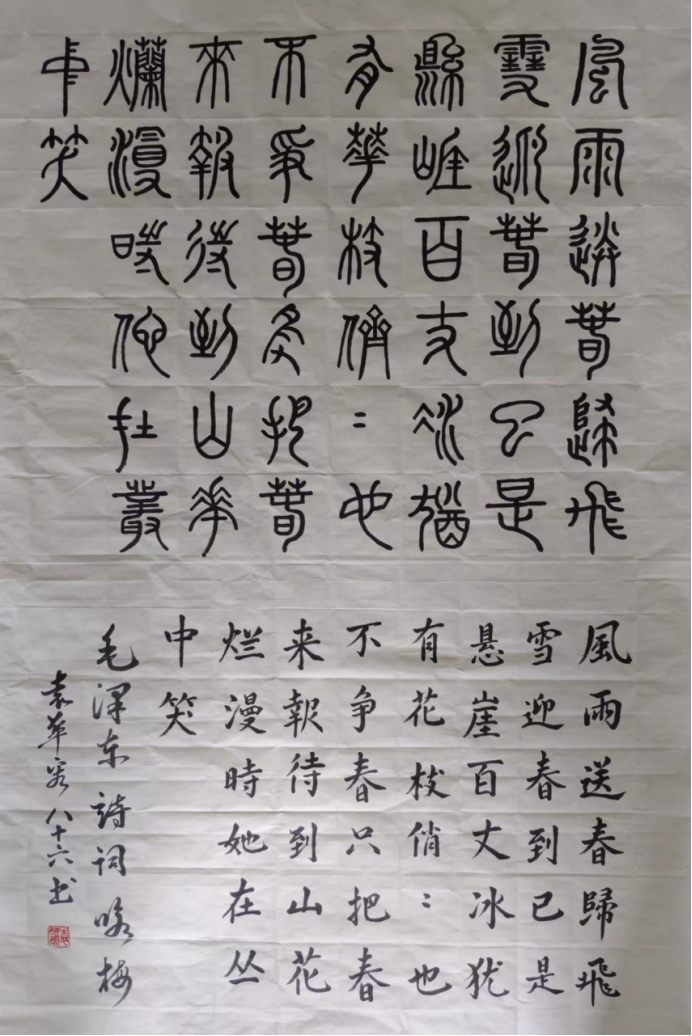 風雨送春歸飛
雪迎春到已是
縣崖百丈冰猶
有華枝俏：也
不爭春只把春
來報待到山花
爛漫時她在叢
中笑
風雨送春歸飛
雪迎春到已是
悬崖百丈冰犹
有花枝俏：也
不争春只把春
来報待到山花
烂漫時她在丛
中笑
毛泽东詩词咏梅
袁 八十六书